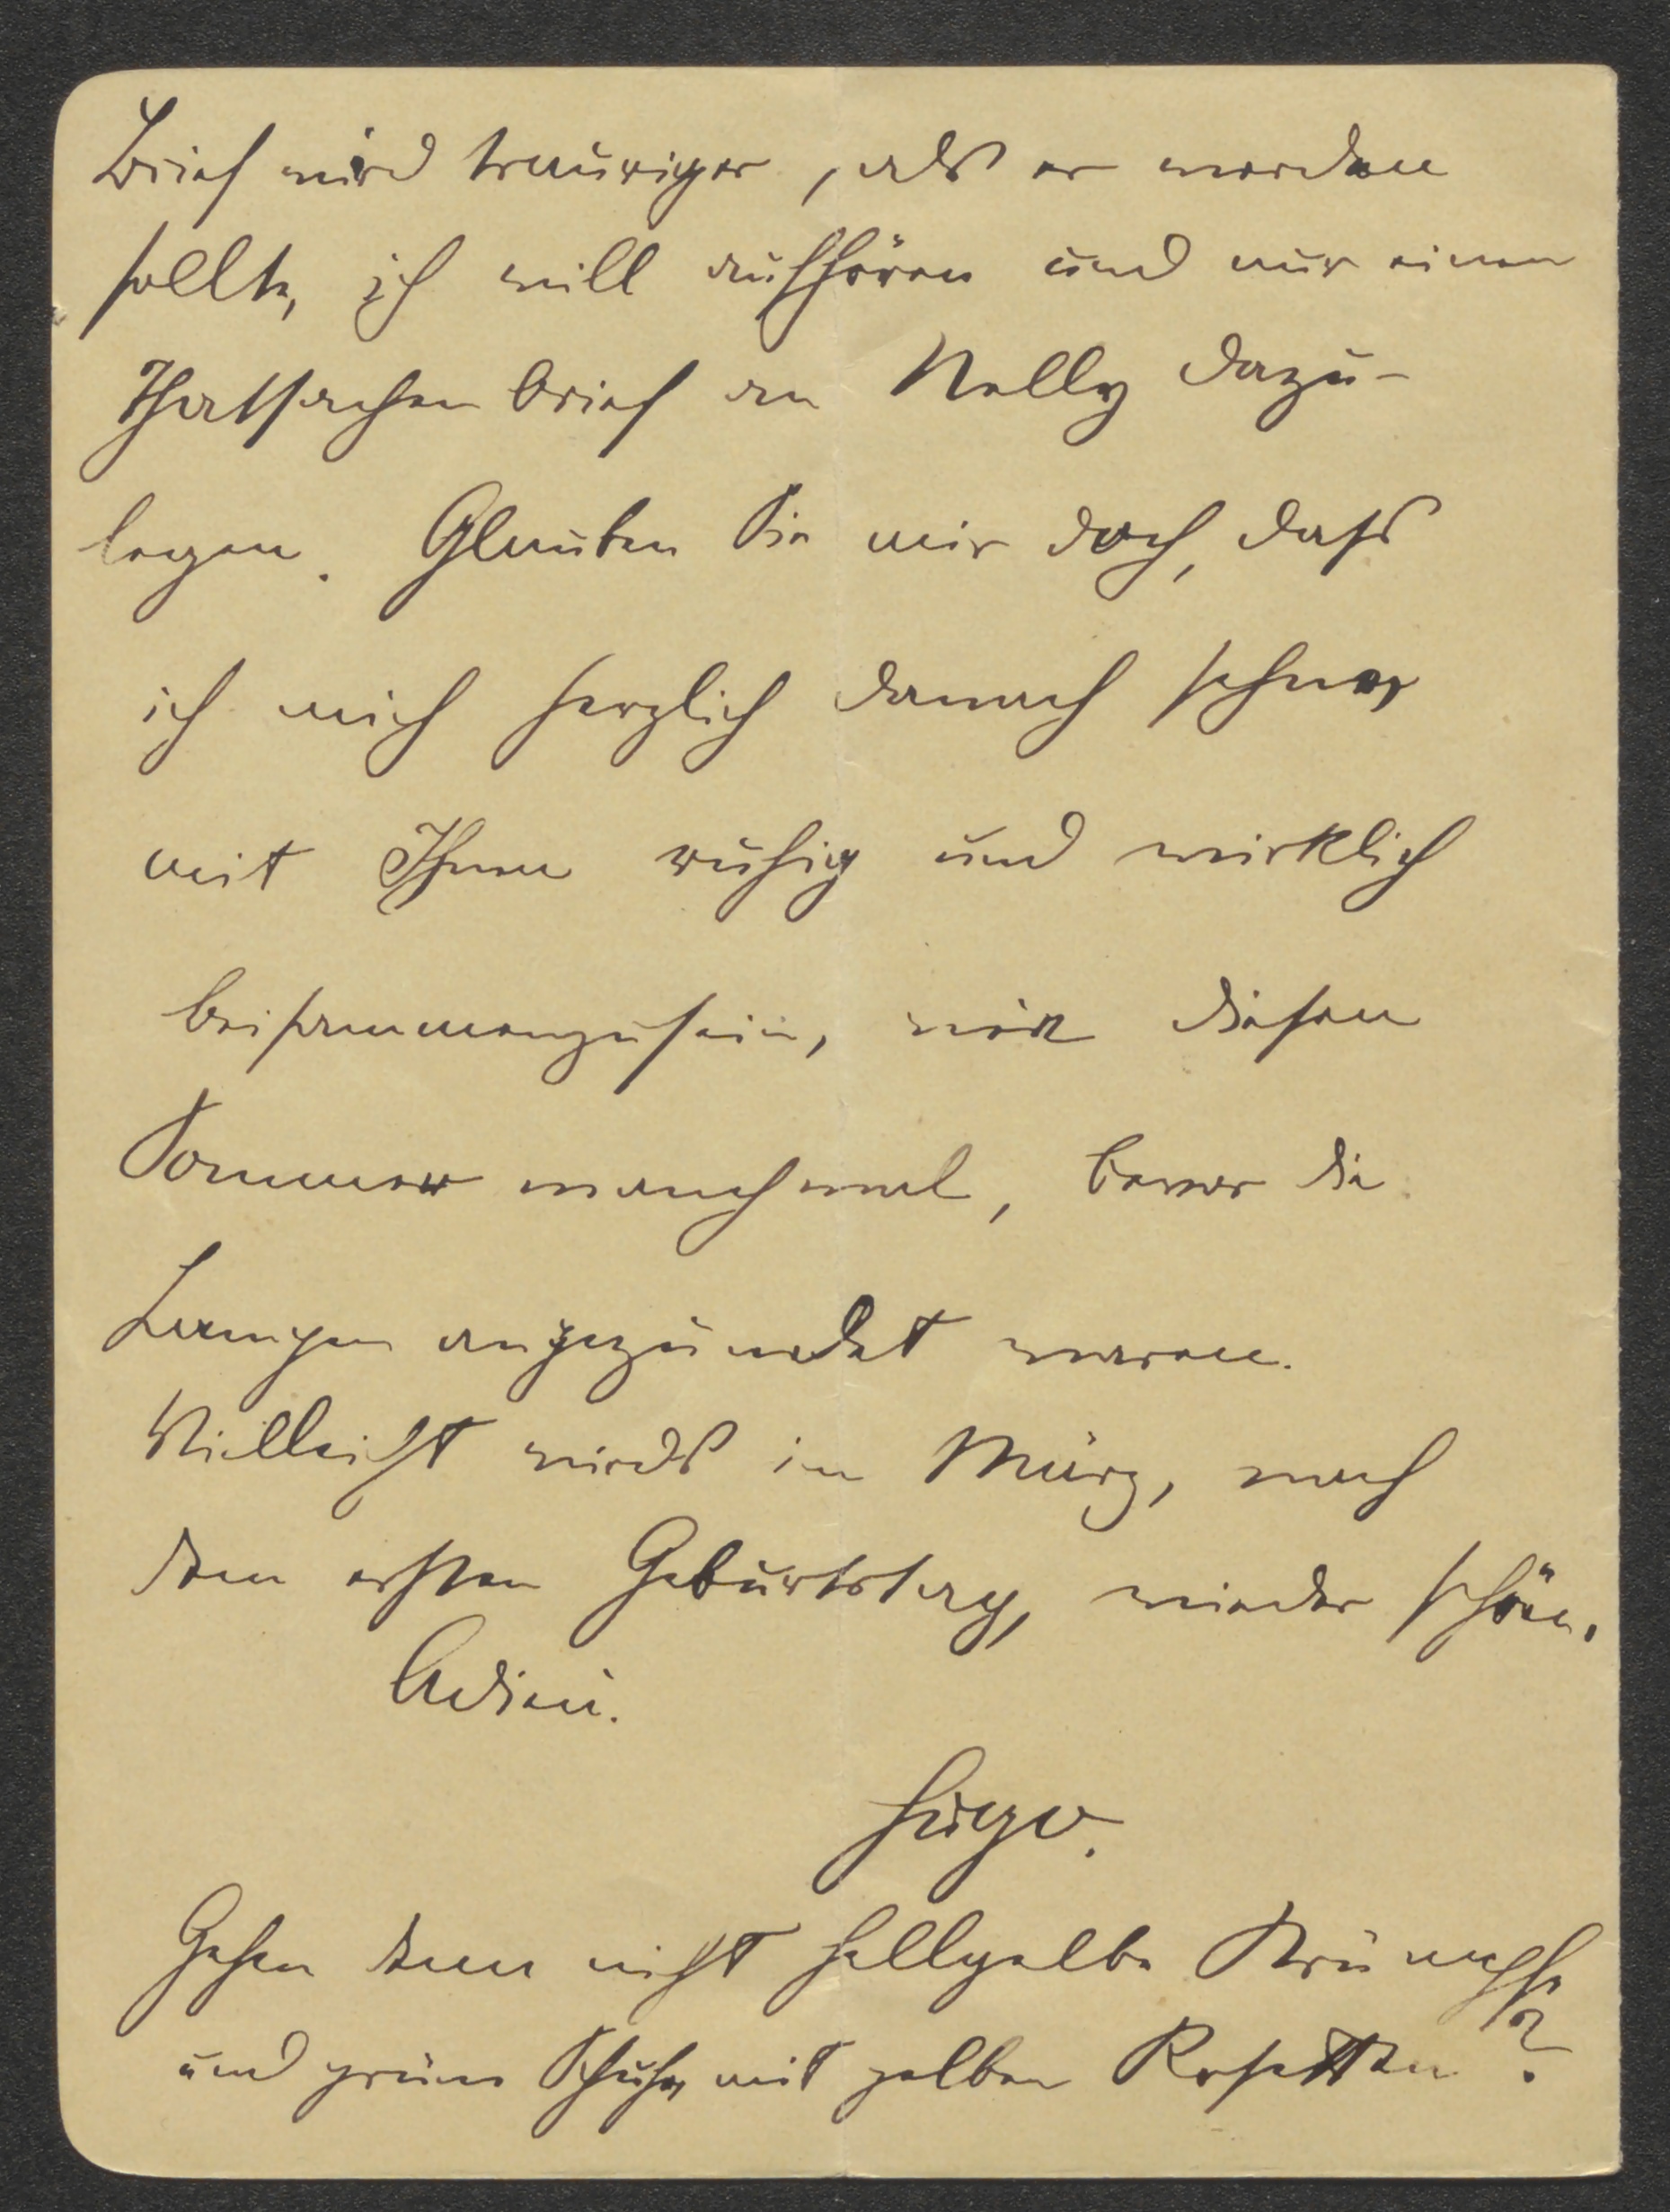 Brief wird trauriger, als er werden
sollte, ich will aufhören und nur einen
Thatsachenbrief an Nelly dazu-
legen. Glauben Sie mir doch, dass
ich mich herzlich danach sehne,
mit Ihnen ruhig und wirklich
beisammenzusein, wie diesen
Sommer manchmal, bevor die
Lampen angezündet waren.
Vielleicht wirds im März, nach
dem ersten Geburtstag, wieder schön.
Adieu.
Hugo.
Gehen denn nicht hellgelbe Strümpfe
und grüne Schuhe mit gelben Rosetten?